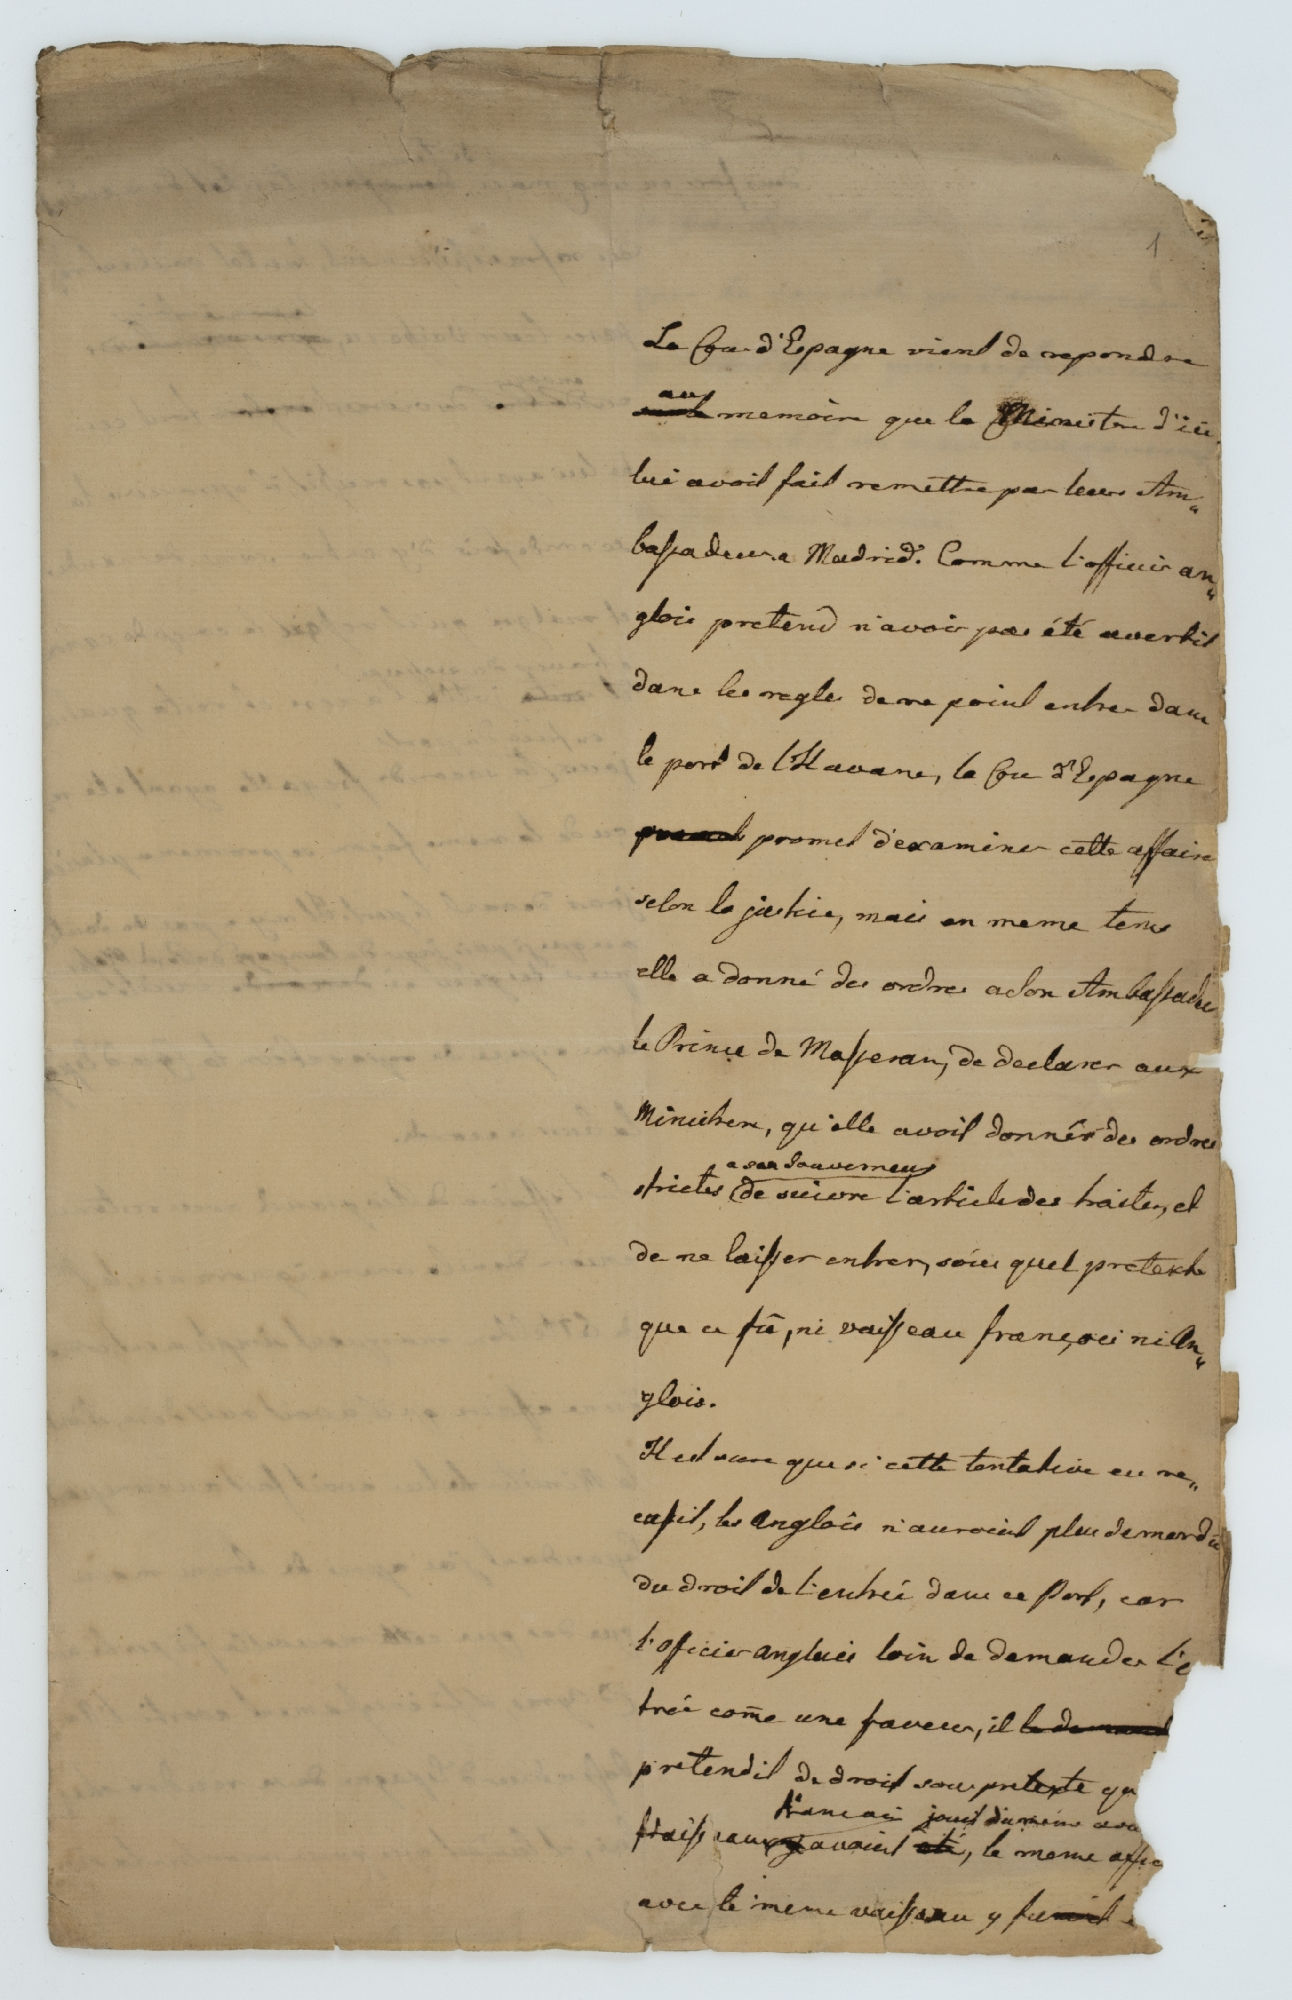 1
La Cour d'Espagne vient de repondre
au memoire que le Ministre d'ici
lui avoit fait remettre par leur Am„
bassadeur a Madrid. Comme l'officier an„
glois pretend n'avoir pas été avertit
dans les regles de ne point entrer dans
le port de l'Havane, la Cour d'Espagne
promet d'examiner cette affaire
selon la justice, mais en meme tems
elle a donné des ordres a son Ambassadeur
le Prince de Masseran, de declarer aux
Ministres, qu'elle avoit donnés des ordres
a ses Gouverneurs
strictes de suivre l'article des traites, et
de ne laisser entrer, sous quel pretexte
que ce fû, ni vaisseau françois ni An„
glois.
Il est sure que si cette tentative eu re„
eussit, les Anglois n'auroient plus demordu
du droit de l'entrée dans ce Port, car
l'officier anglois loin de demander l'e
trée com̄e une faveur, il le demand
pretendit de droit sous pretexte qu
francois jouit du meme
vaisseau y avoient été, le meme offic
avec le meme vaisseau y